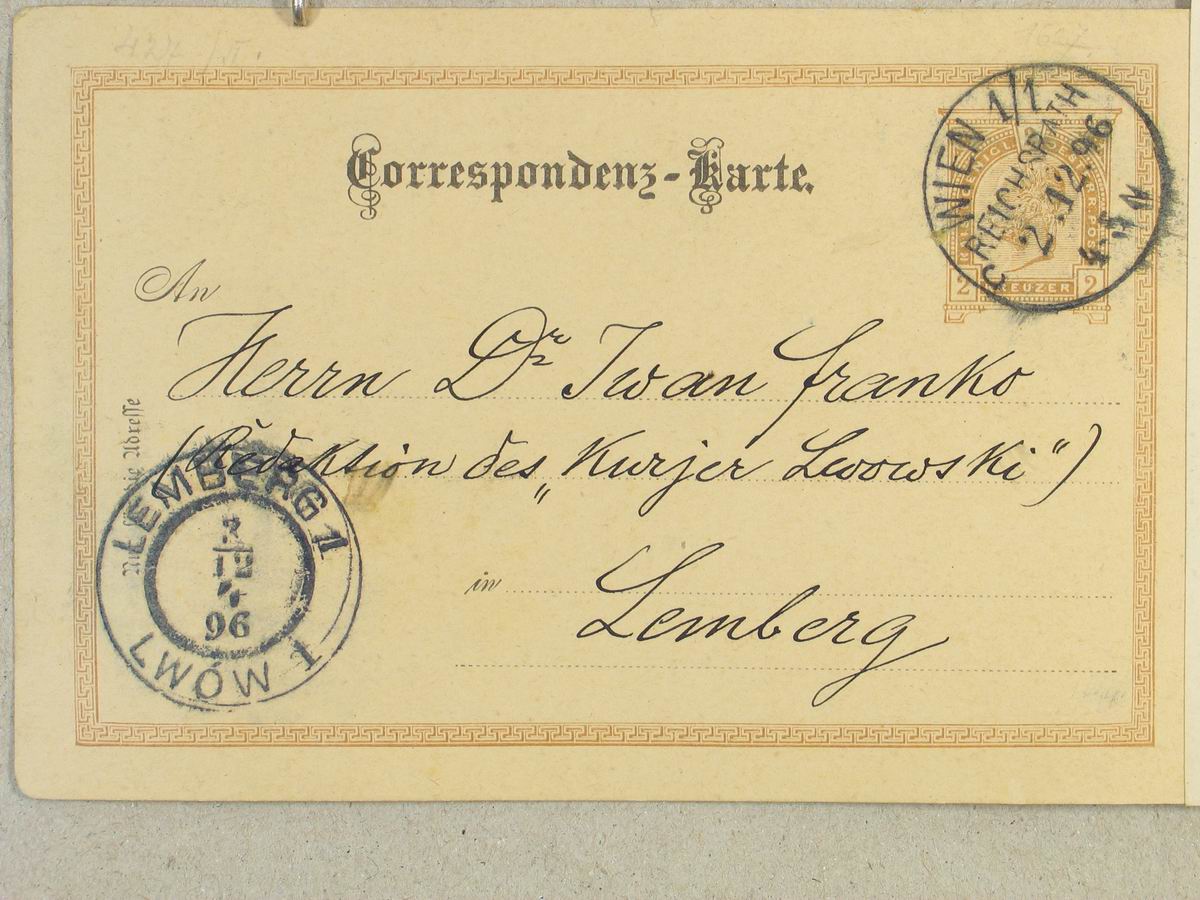 427 /II.
Correspondenz-Karte.
WIEN 1/1
REICHSRATH
2.12.96
4-5 N
C
2 KREUZER 2
An
Herrn Dr Iwan Franko
(Redaktion des „Kurjer Lwowski")
in Lemberg
LEMBERG 1
3
12
96
LWÓW 1